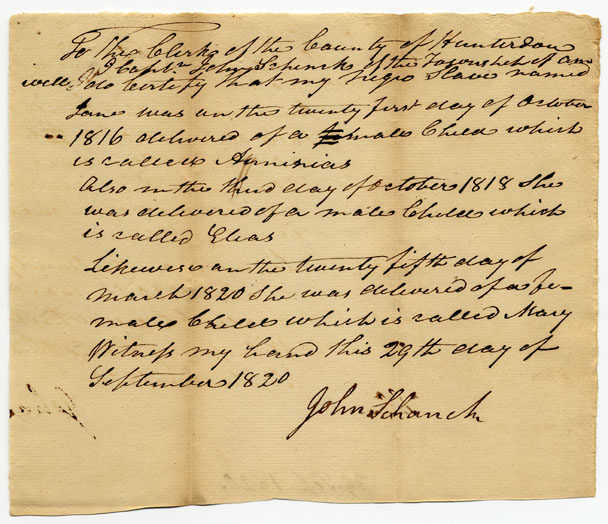 To the Clerk of the County of Hunterdon
I Capt.n John Schenck of the Township of Am
well I do Certify that my Negro Slave named
Jane was on the twenty first day of October
1816 delivered of a male Child which
is called Annisias
Also on the third day of October 1818 She
was delivered of a male Child which
is called Elias
Likewise on the twenty fifth day of
March 1820 She was delivered of a fe-
male Child which is called Mary
Witness my hand this 29th day of
September 1820
John Schanck